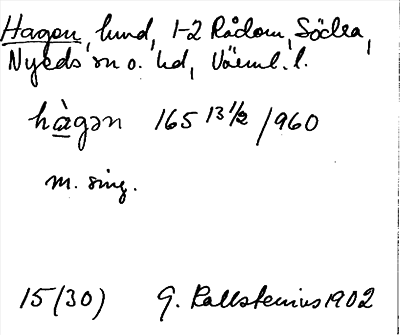 Hagen, lund, 1-2 Rådom, Södra,
Nyeds sn o. hd, Värml. l.
hàgən 165 13½ /960
m. sing.
15(30) G. Kallstenius 1902